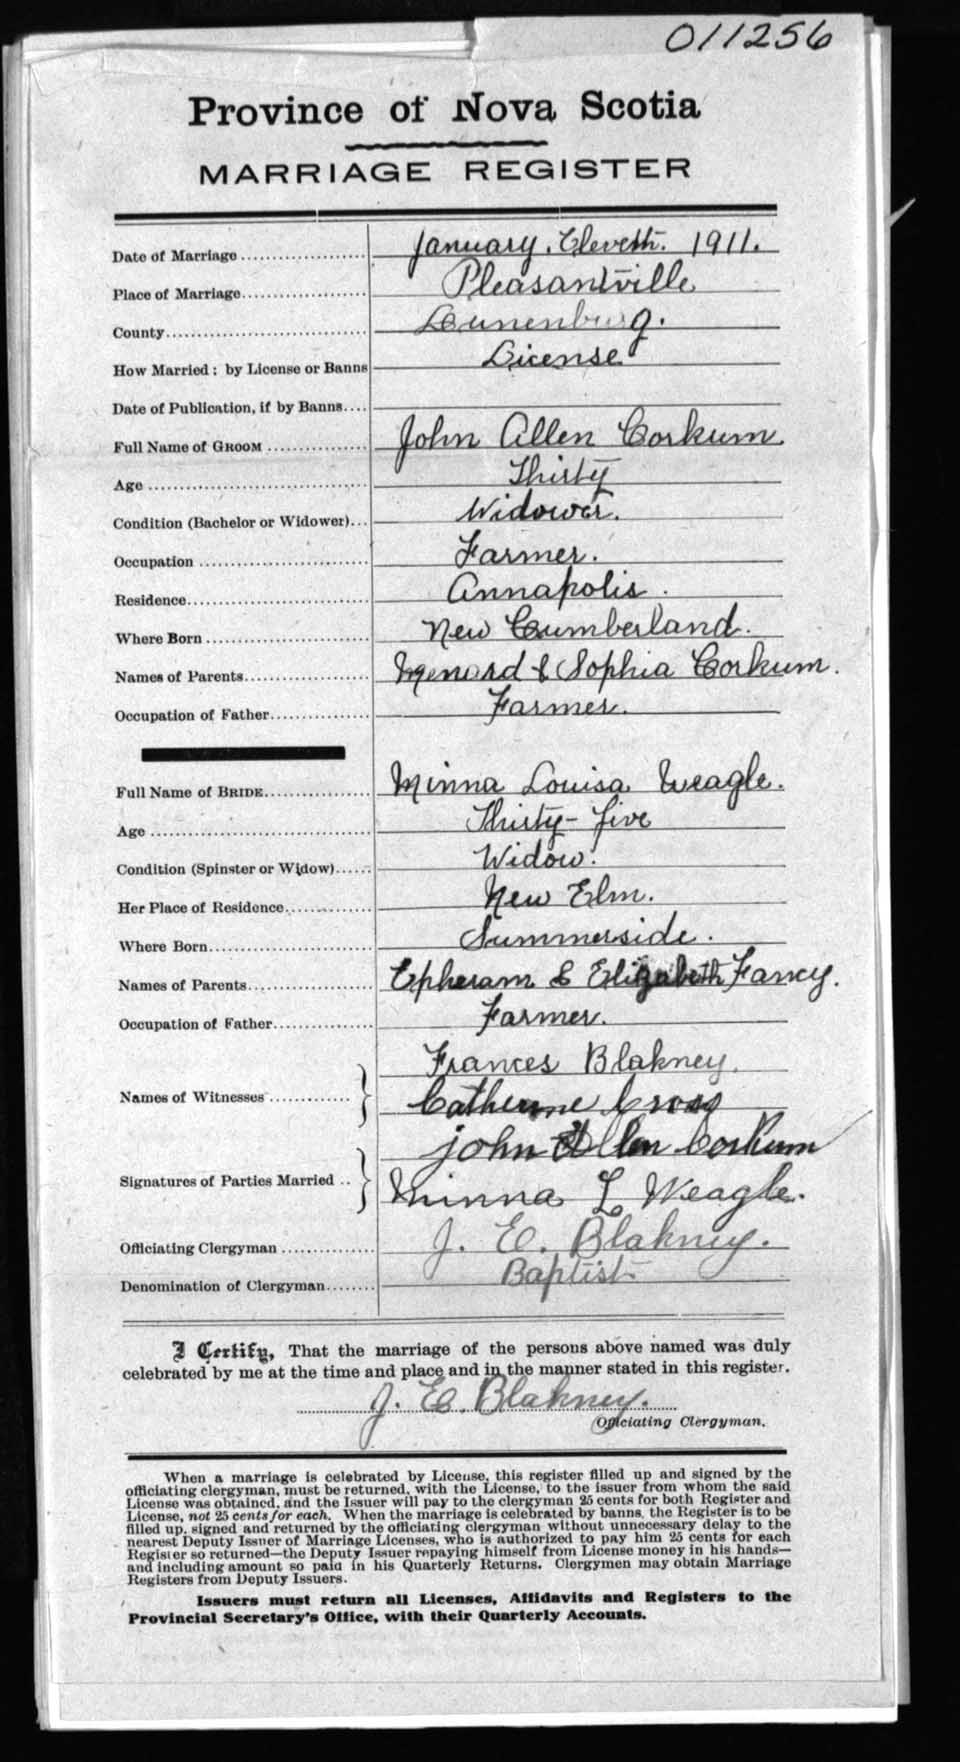 011256
Province of Nova Scotia
MARRIAGE REGISTER
Date of Marriage .................... January. Eleveth. 1911.
Place of Marriage.................... Pleasantville
County.............................. Lunenburg.
How Married: by License or Banns License
Date of Publication, if by Banns....
Full Name of GROOM ................ John Allen Corkum.
Age ................................. Thirty
Condition (Bachelor or Widower)... Widower.
Occupation ......................... Farmer.
Residence........................... Annapolis.
Where Born ........................ New Cumberland.
Names of Parents................... & Sophia Corkum.
Occupation of Father............... Farmer.
Full Name of BRIDE................. Minna Louisa Weagle.
Age ................................. Thirty-five
Condition (Spinster or Widow)...... Widow.
Her Place of Residence............. New Elm.
Where Born......................... Summerside.
Names of Parents................... Epheram & Elizabeth Fancy.
Occupation of Father............... Farmer.
Frances Blakney.
Names of Witnesses ............. Catherine Cross
John Allen Corkum
Signatures of Parties Married .. Minna L Weagle.
Officiating Clergyman .............. J. E. Blakney.
Denomination of Clergyman........ Baptist
I Certify, That the marriage of the persons above named was duly
celebrated by me at the time and place and in the manner stated in this register.
J. E. Blakney.
Officiating Clergyman.
When a marriage is celebrated by License, this register filled up and signed by the
officiating clergyman, must be returned, with the License, to the issuer from whom the said
License was obtained, and the Issuer will pay to the clergyman 25 cents for both Register and
License, not 25 cents for each. When the marriage is celebrated by banns, the Register is to be
filled up, signed and returned by the officiating clergyman without unnecessary delay to the
nearest Deputy Issuer of Marriage Licenses, who is authorized to pay him 25 cents for each
Register so returned—the Deputy Issuer repaying himself from License money in his hands—
and including amount so paid in his Quarterly Returns. Clergymen may obtain Marriage
Registers from Deputy Issuers.
Issuers must return all Licenses, Affidavits and Registers to the
Provincial Secretary's Office, with their Quarterly Accounts.